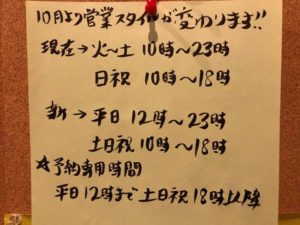 10月より営業スタイルが変わります!!
現在→火〜土 10時〜23時
日祝 10時〜18時
新→平日 12時〜23時
土日祝 10時〜18時
☆予約専用時間
平日12時まで 土日祝18時以降